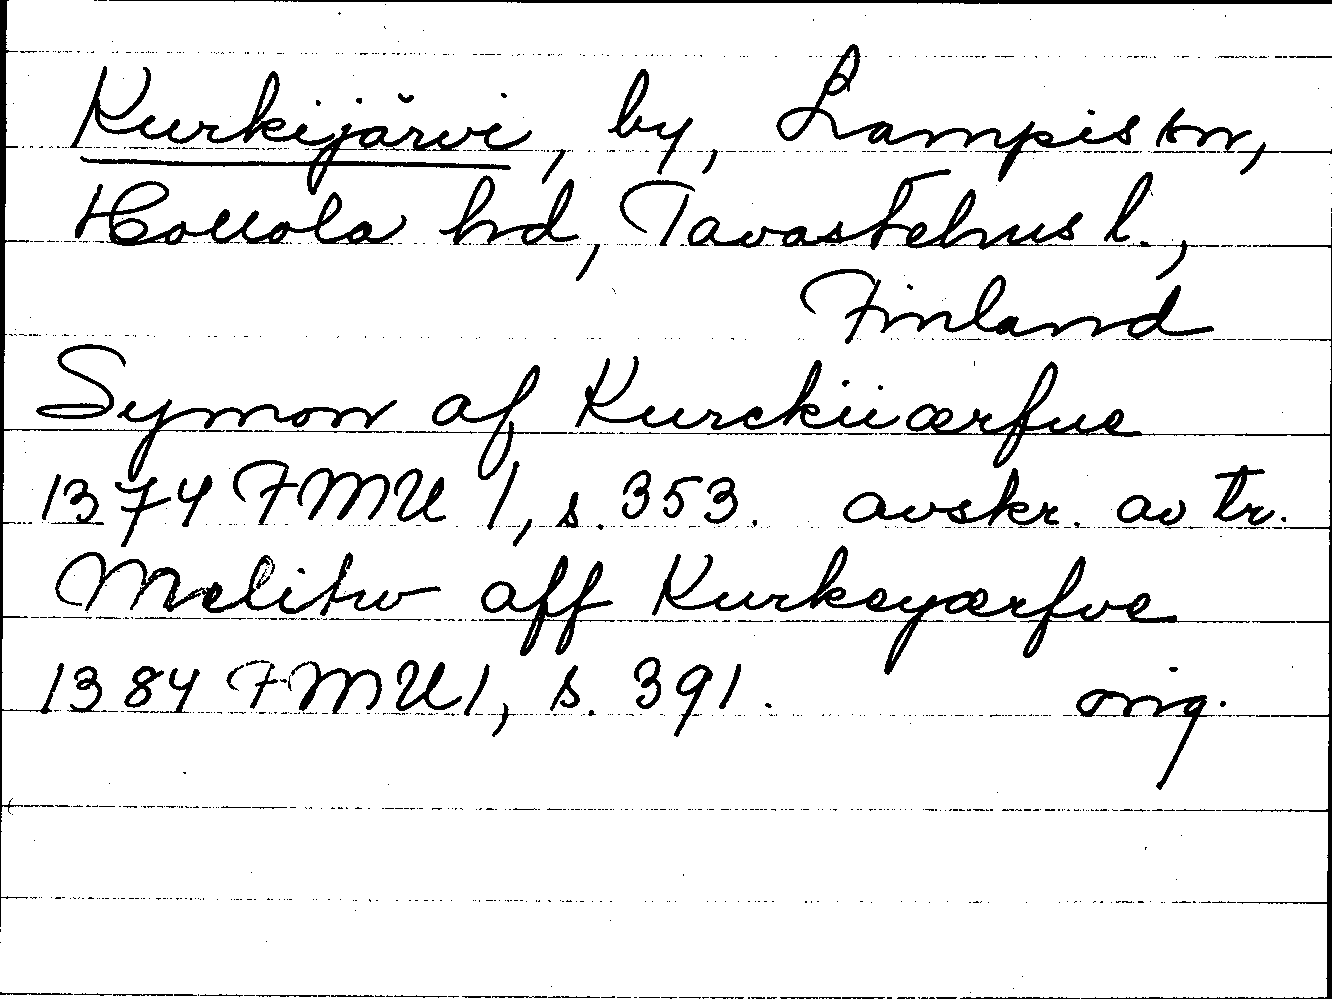 Kurkijärvi, by, Lampis sn,
Hollola hd, Tavastehus l.,
Finland
Symon af Kurckiiærfue
1374 FMU 1, s. 353. avskr. av tr.
Melitw aff Kurkeyærfve
1384 FMU 1, s. 391. orig.